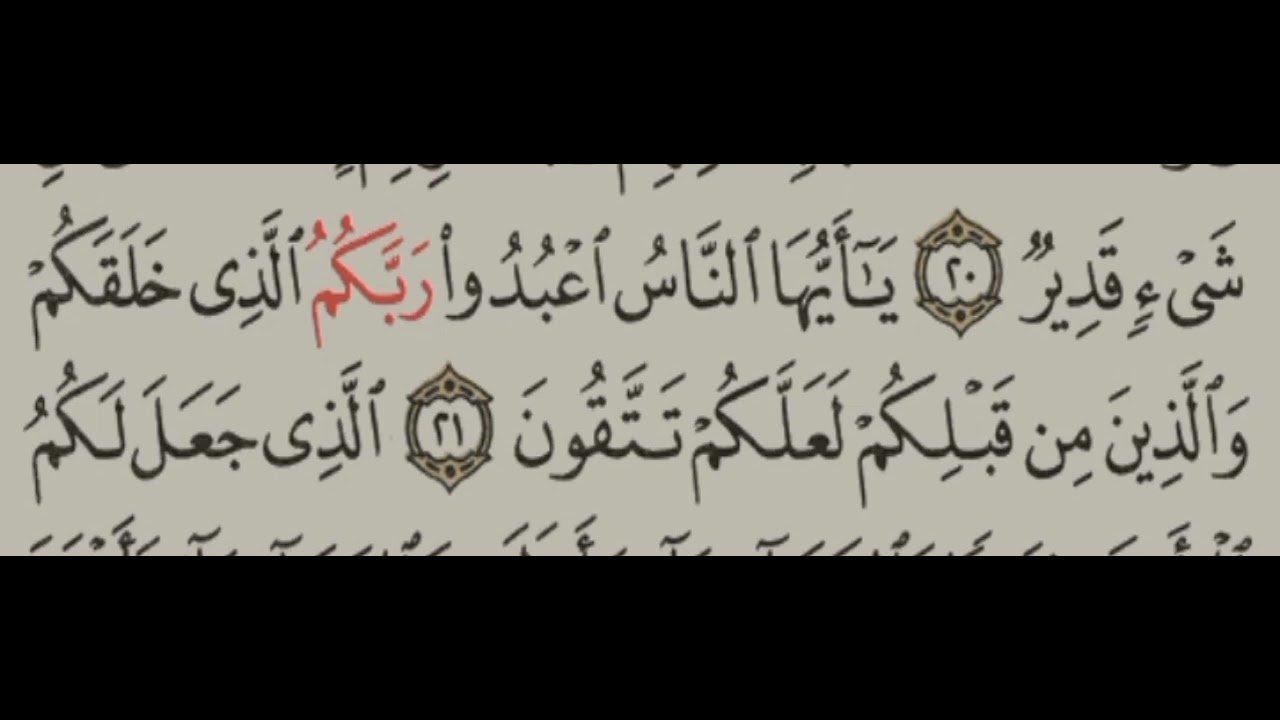 شَىْءٍ قَدِيرٌ ٢٠ يَـٰٓأَيُّهَا ٱلنَّاسُ ٱعْبُدُوا۟ رَبَّكُمُ ٱلَّذِى خَلَقَكُمْ
وَٱلَّذِينَ مِن قَبْلِكُمْ لَعَلَّكُمْ تَتَّقُونَ ٢١ ٱلَّذِى جَعَلَ لَكُمُ